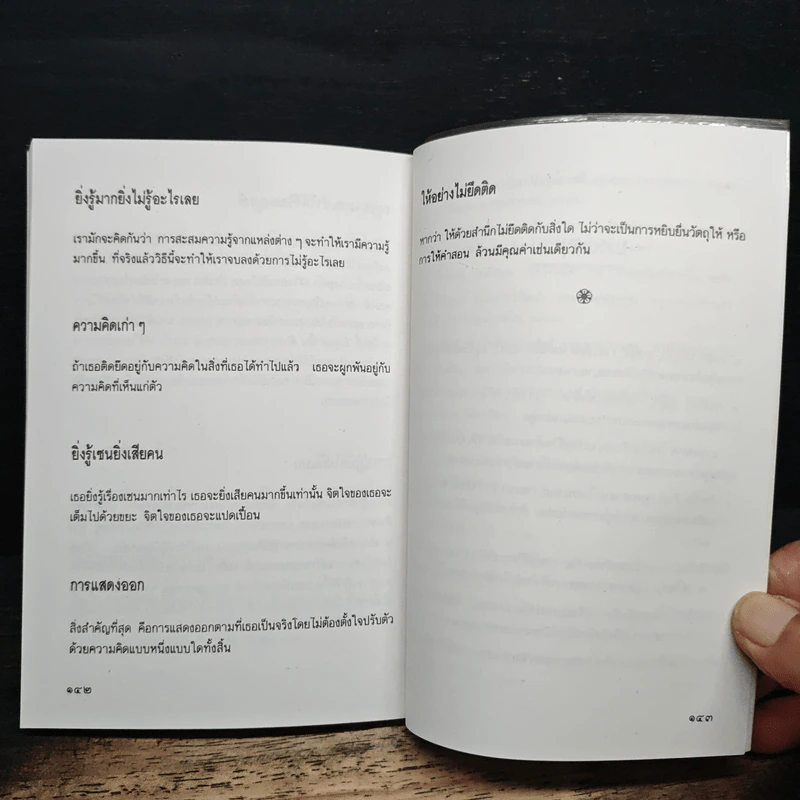 ยิ่งรู้มากยิ่งไม่รู้อะไรเลย
เรามักจะคิดกันว่า การสะสมความรู้จากแหล่งต่าง ๆ จะทำให้เรามีความรู้
มากขึ้น ที่จริงแล้ววิธีนี้จะทำให้เราจบลงด้วยการไม่รู้อะไรเลย
ความคิดเก่า ๆ
ถ้าเธอติดยึดอยู่กับความคิดในสิ่งที่เธอได้ทำไปแล้ว เธอจะผูกพันอยู่กับ
ความคิดที่เห็นแก่ตัว
ยิ่งรู้เซนยิ่งเสียคน
เธอยิ่งรู้เรื่องเซนมากเท่าไร เธอจะยิ่งเสียคนมากขึ้นเท่านั้น จิตใจของเธอจะ
เต็มไปด้วยขยะ จิตใจของเธอจะแปดเปื้อน
การแสดงออก
สิ่งสำคัญที่สุด คือการแสดงออกตามที่เธอเป็นจริงโดยไม่ต้องตั้งใจปรับตัว
ด้วยความคิดแบบหนึ่งแบบใดทั้งสิ้น
๑๔๒
ให้อย่างไม่ยึดติด
หากว่า ให้ด้วยสำนึกไม่ยึดติดกับสิ่งใด ไม่ว่าจะเป็นการหยิบยื่นวัตถุให้ หรือ
การให้คำสอน ล้วนมีคุณค่าเช่นเดียวกัน
๑๔๓